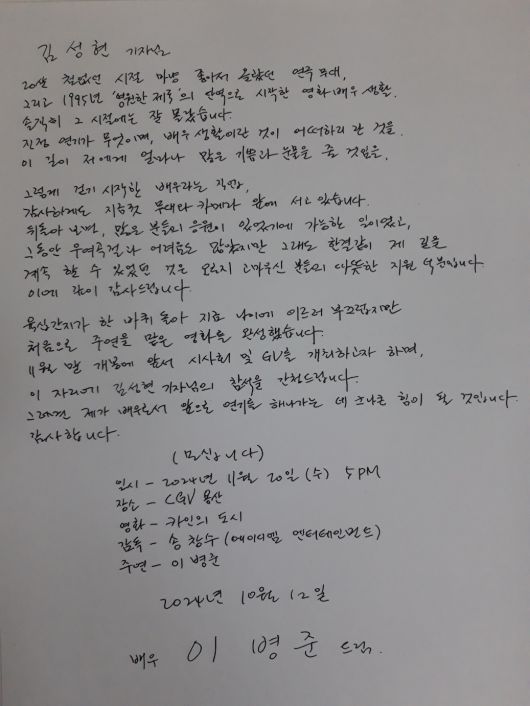 김성현 기자님
20살 철없던 시절 마냥 좋아서 올랐던 연극 무대,
그리고 1995년 '영원한 제국'의 단역으로 시작한 영화배우 생활.
솔직히 그 시절에는 잘 몰랐습니다.
진정 연기가 무엇이며, 배우 생활이란 것이 어떠하리란 것을.
이 길이 저에게 얼마나 많은 기쁨과 눈물을 줄 것임을.
그렇게 걷기 시작한 배우라는 직업,
감사하게도 지금껏 무대와 카메라 앞에 서고 있습니다.
뒤돌아 보면, 많은 분들의 응원이 있었기에 가능한 일이었고,
그동안 우여곡절과 어려움도 많았지만 그래도 한결같이 제 길을
계속 할 수 있었던 것은 오로지 고마우신 분들의 따뜻한 지원 덕분입니다.
이에 깊이 감사드립니다.
육십간지가 한 바퀴 돌아 지금 나이에 이르러 부끄럽지만
처음으로 주연을 맡은 영화를 완성했습니다.
11월 말 개봉에 앞서 시사회 및 GV를 개최하고자 하며,
이 자리에 김성현 기자님의 참석을 간청드립니다.
그래주면 제가 배우로서 앞으로 연기를 해나가는 데 크나큰 힘이 될 것입니다.
감사합니다.
(모십니다)
일시 - 2024년 11월 20일 (수) 5PM
장소 - CGV 용산
영화 - 카인의 도시
감독 - 송창수 (에이디엠 엔터테인먼트)
주연 - 이병준
2024년 10월 12일
배우 이병준 드림.